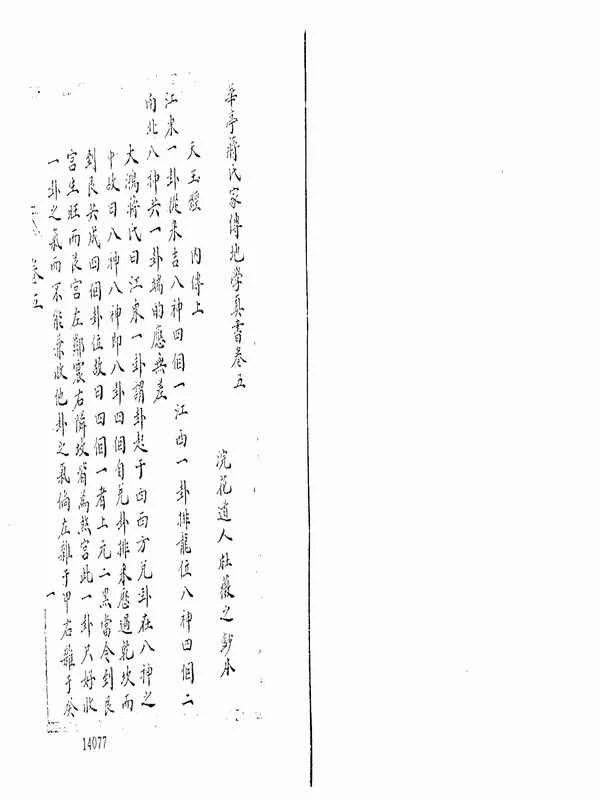 華亭蔣氏家傳地學真書卷五
浣花道人杜薇之鈔本
天玉經 內傳上
江東一卦從來吉八神四個一江西一卦排龍位八神四個二
南北八神共一卦端的應無差
大鴻蔣氏曰江東一卦謂卦起于西西方兌卦在八神之
中故曰八神八神即八卦四個自兌卦排來歷過乾坎而
到艮共成四個卦位故曰四個一者上元二黑當令到艮
宮生旺而艮宮左鄰震右隣坎皆為煞宮此一卦只好收
一卦之氣而不能兼收他卦之氣倘左雜于甲右雜于癸
卷五
一
14077